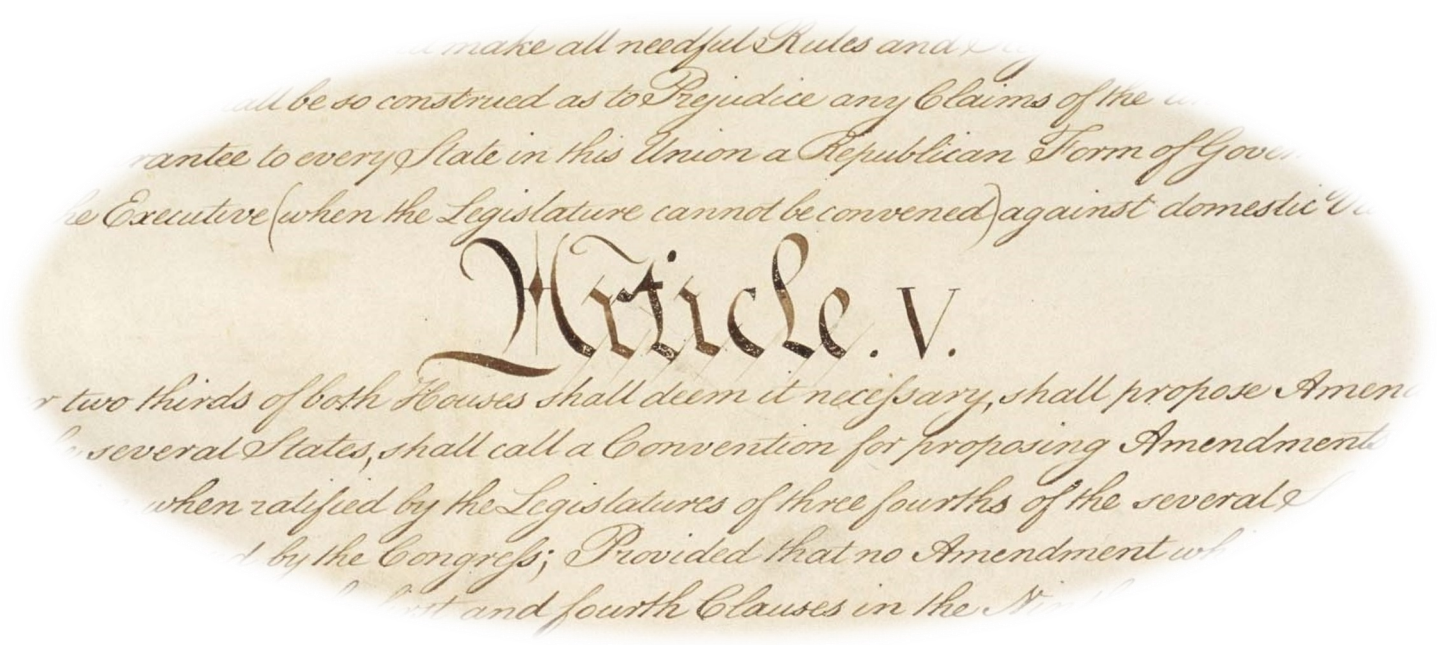 make all needful Rules and
all be so construed as to Prejudice any Claims of the
rantee to every State in this Union a Republican Form of Gover
he Executive (when the Legislature cannot be convened) against domestic Vi
Article. V.
r two thirds of both Houses shall deem it neceſsary, shall propose Amend
several States, shall call a Convention for proposing Amendments
when ratified by the Legislatures of three fourths of the several S
d by the Congreſs; Provided that no Amendment whi
first and fourth Clauses in the Nin